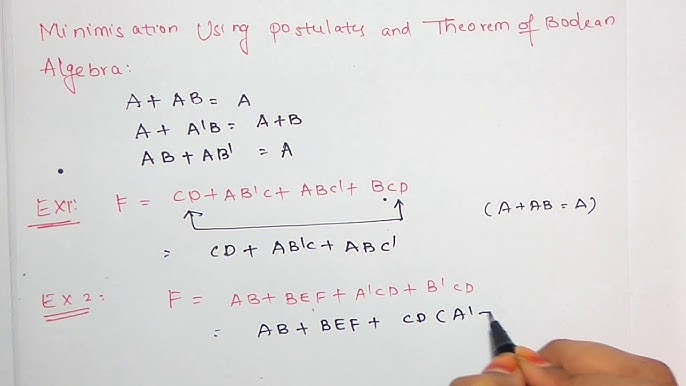 Minimisation Using postulates and Theorem of Boolean
Algebra:
A + AB = A
A + A'B = A+B
AB + AB' = A
EX1: F = CD + AB'C + ABC' + BCD
(A + AB = A)
= CD + AB'C + ABC'
EX 2: F = AB + BEF + A'CD + B'CD
= AB + BEF + CD (A' -